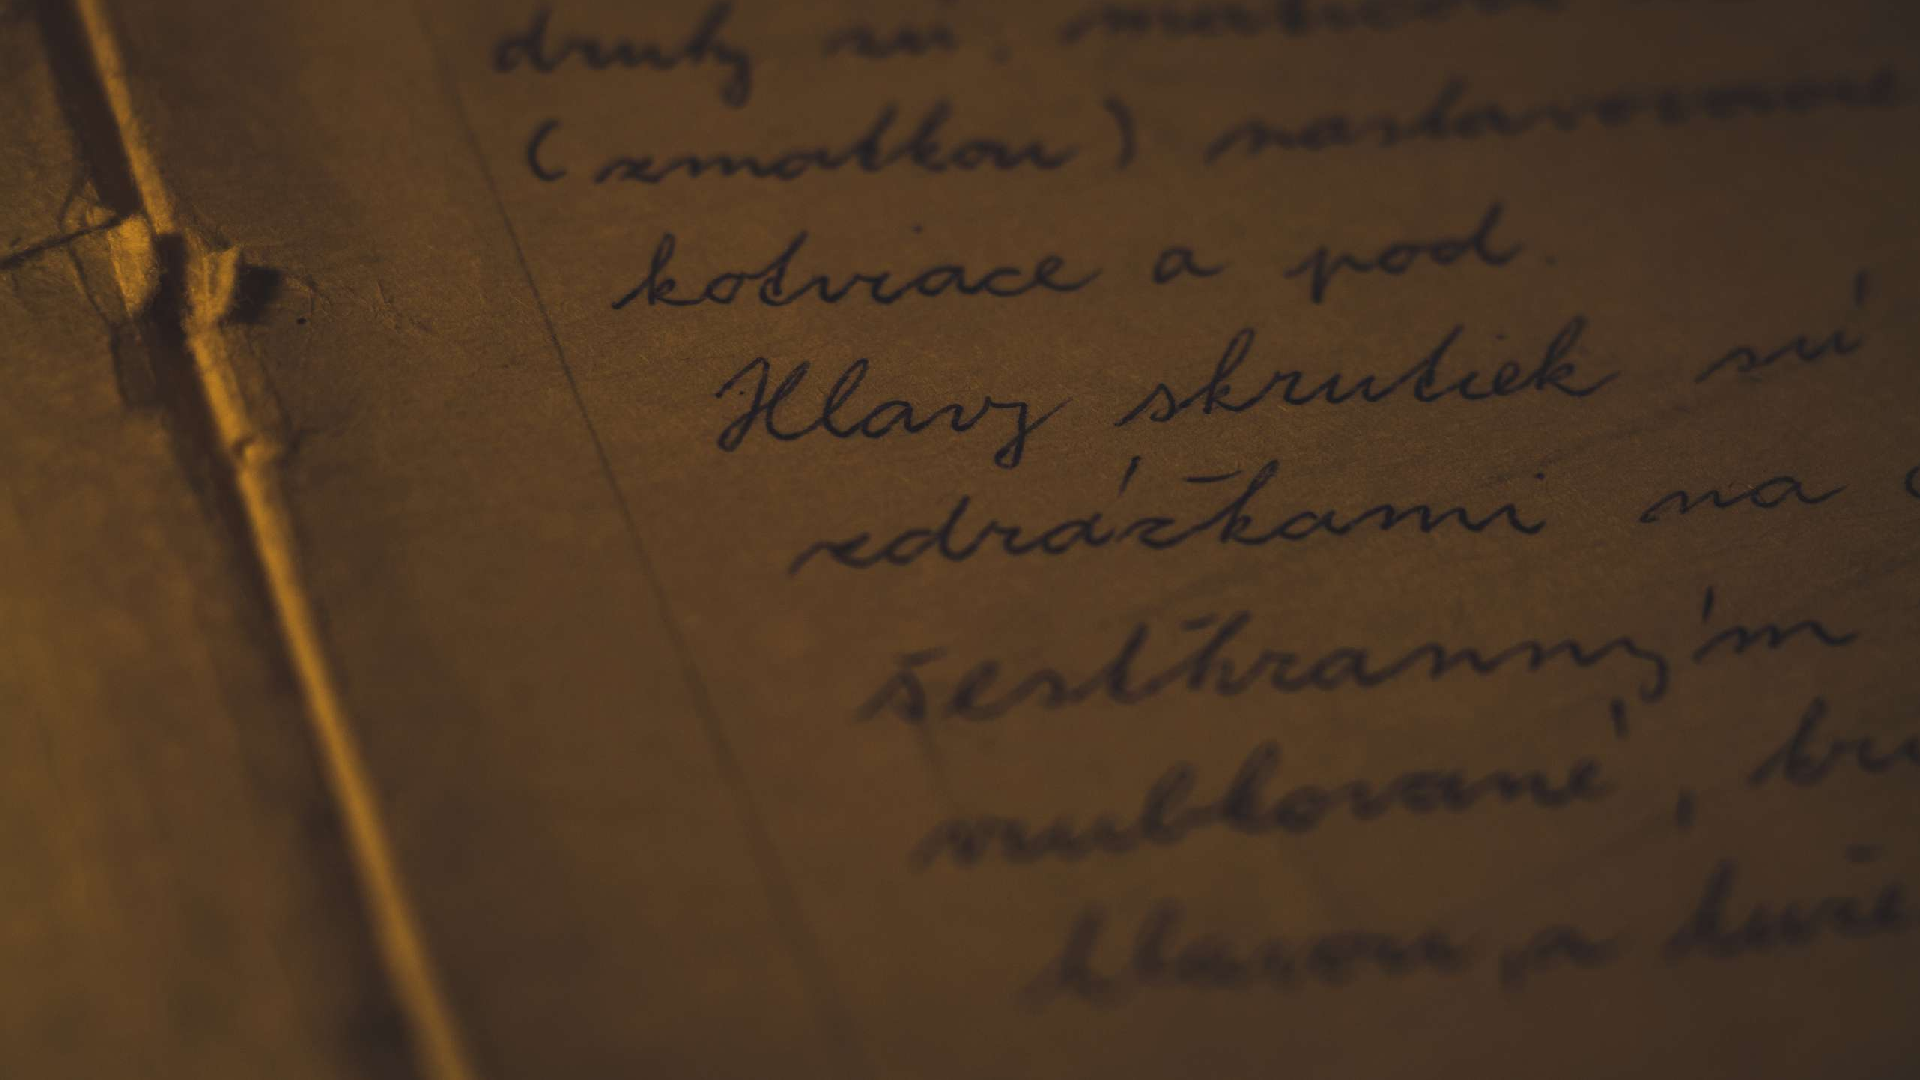 druhy sú: maticové
(zmatkou) nastavovacie
kotviace a pod.
Hlavy skrutiek sú
zdrážkami na
šesťhranným
vrubkované,
hlavou, a